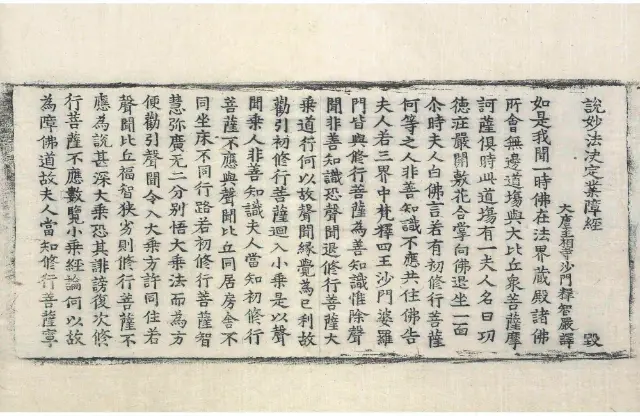 說妙法決定業障經
大唐至相寺沙門釋智嚴譯 毀
如是我聞一時佛在法界藏殿諸佛
所會無邊道場與大比丘衆菩薩摩
訶薩俱時此道場有一夫人名曰功
德莊嚴開敷花合掌向佛退坐一面
尒時夫人白佛言若有初修行菩薩
何等之人非善知識不應共住佛告
夫人若三界中梵釋四王沙門婆羅
門皆與修行菩薩為善知識惟除聲
聞非善知識恐聲聞退修行菩薩大
乘道行何以故聲聞緣覺為己利故
勸引初修行菩薩迴入小乘是以聲
聞乘人非善知識夫人當知初修行
菩薩不應與聲聞比丘同居房舍不
同坐床不同行路若初修行菩薩智
慧弥廣无二分別悟大乘法而為方
便勸引聲聞令入大乘方許同住若
聲聞比丘福智狹劣則修行菩薩不
應為說甚深大乘恐其誹謗復次修
行菩薩不應數覽小乘經論何以故
為障佛道故夫人當知修行菩薩寧